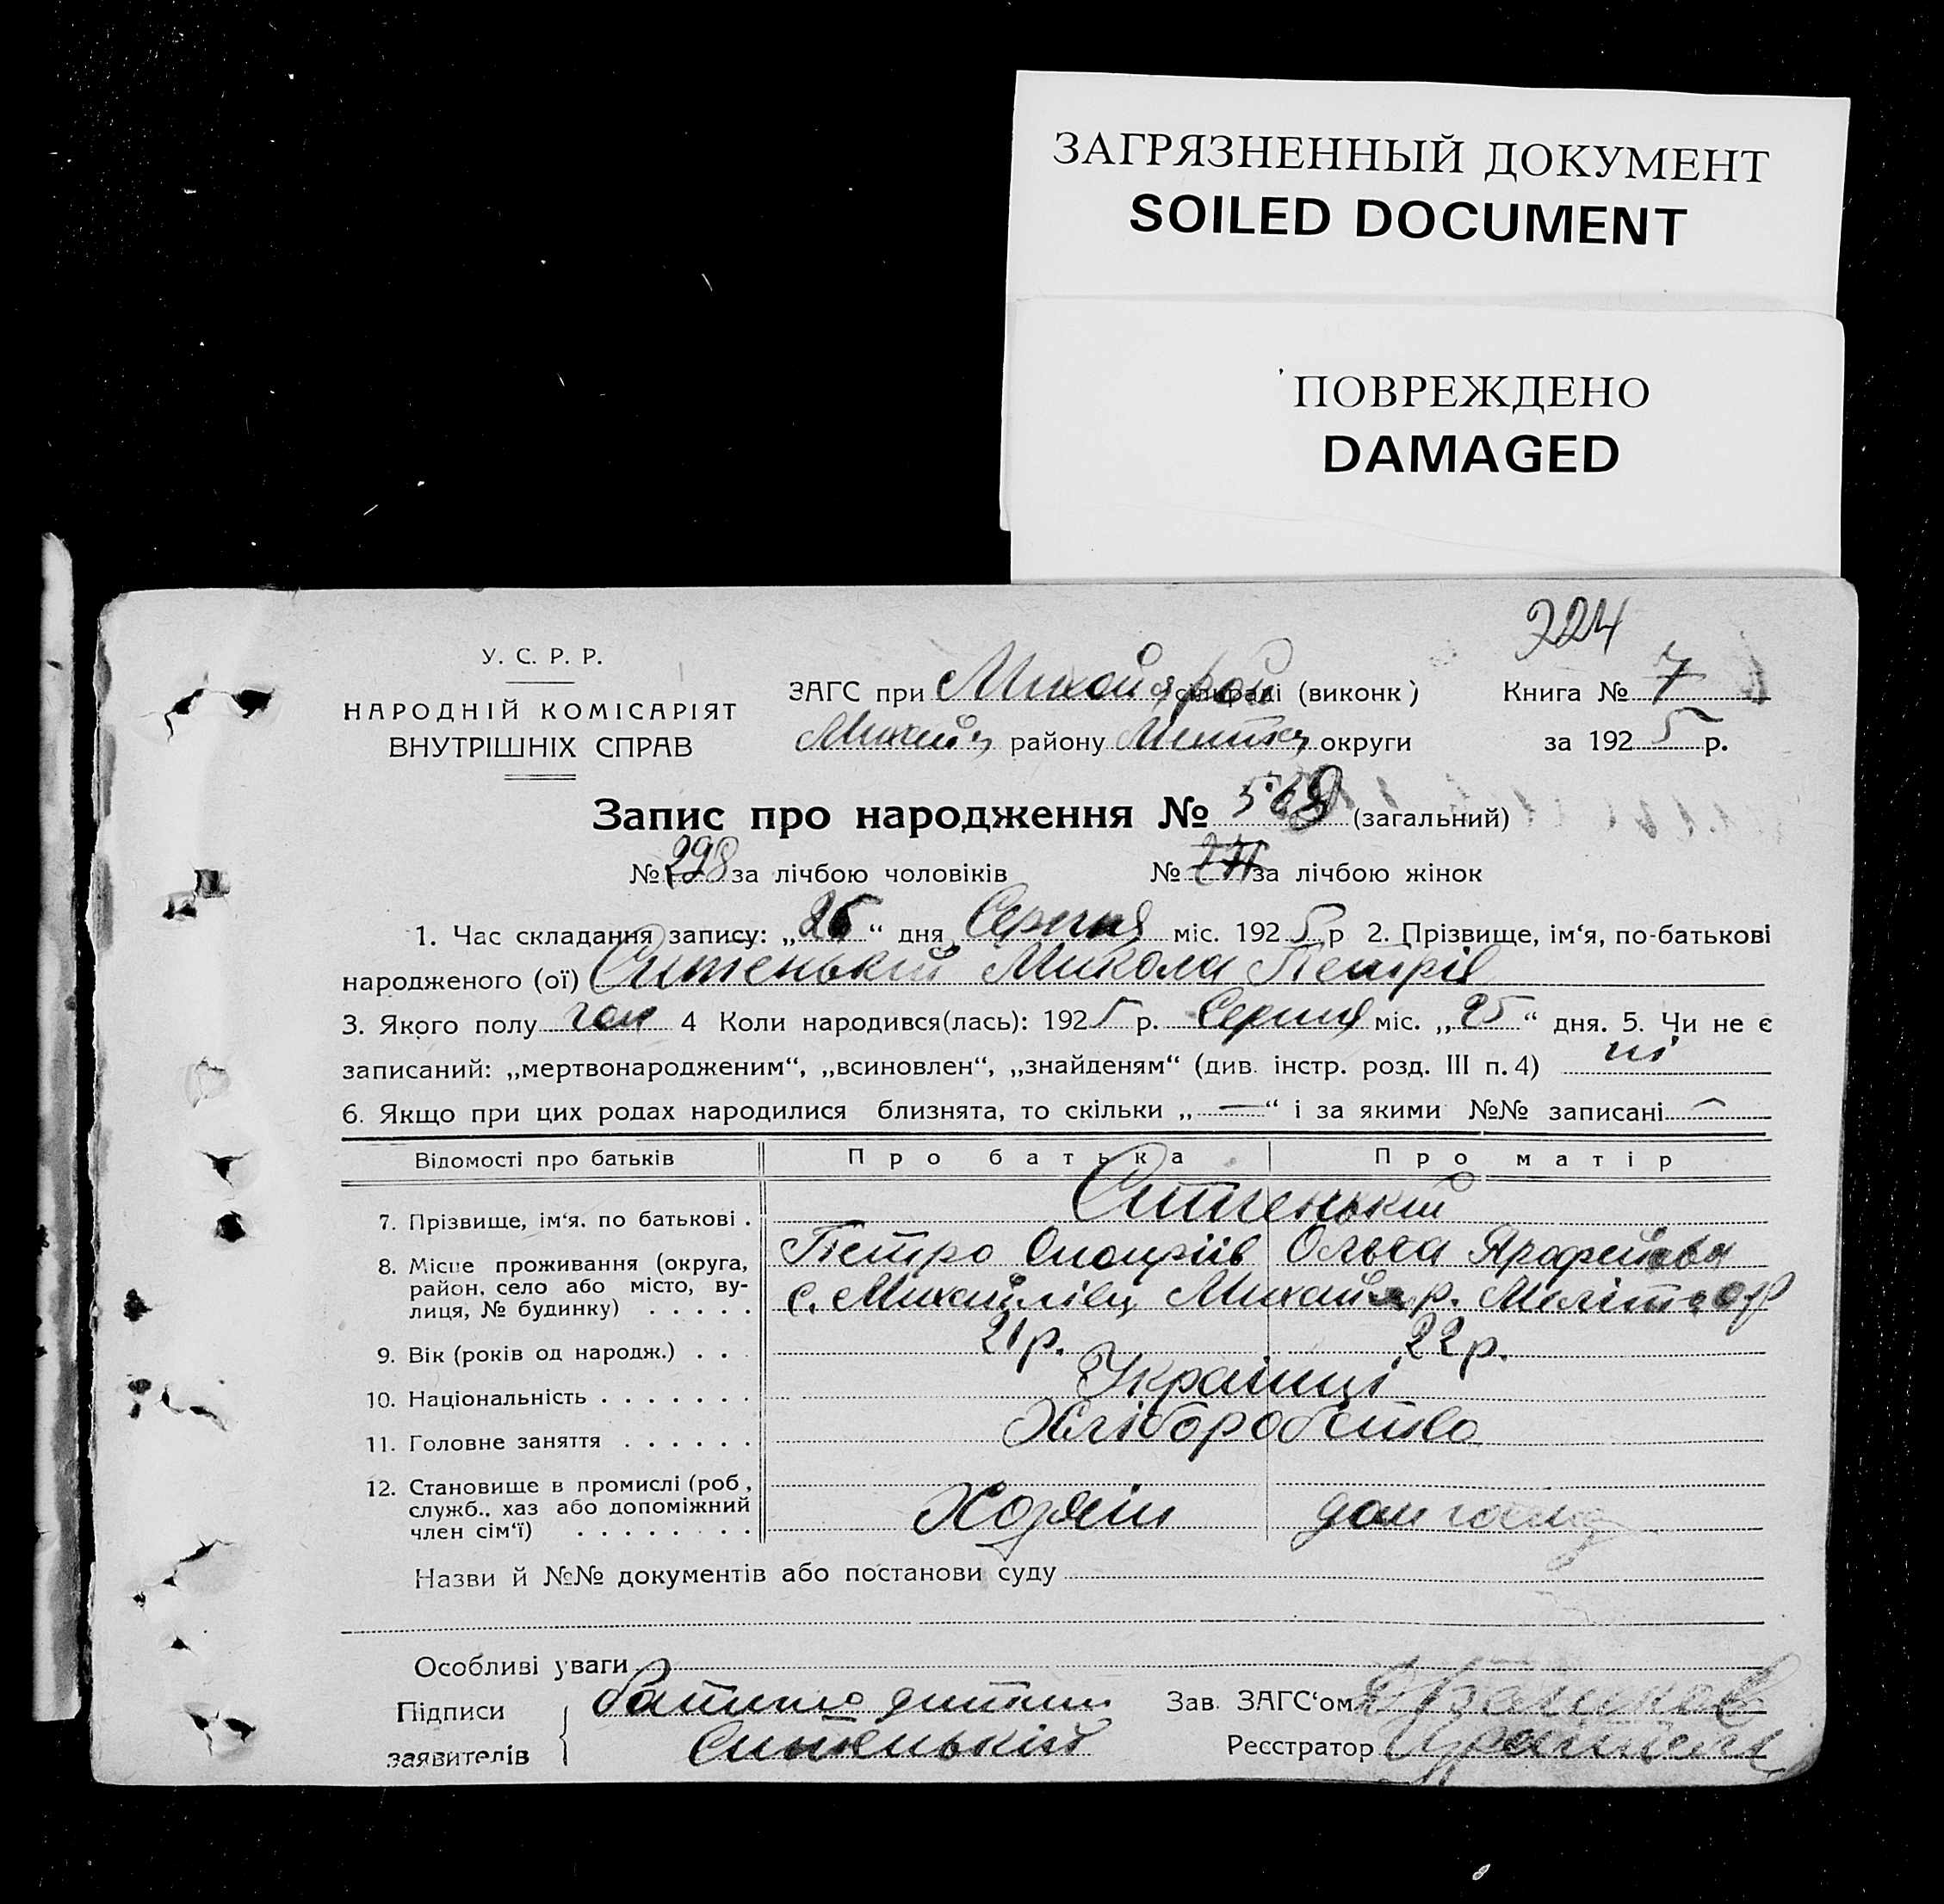 ЗАГРЯЗНЕННЫЙ ДОКУМЕНТ
SOILED DOCUMENT
ПОВРЕЖДЕНО
DAMAGED
224
У. С. Р. Р.
НАРОДНІЙ КОМІСАРІЯТ
ВНУТРІШНІХ СПРАВ
ЗАГС при (виконк) Книга № 7
району округи за 1925 р.
Запис про народження № (загальний)
№ 298 за лічбою чоловіків № за лічбою жінок
1. Час складання запису: „26“ дня Серпня міс. 1925 р 2. Прізвище, ім‘я, по-батькові
народженого (ої) Ситенький Микола Петрів
3. Якого полу чол 4 Коли народився(лась): 1925 р. Серпня міс. „25“ дня. 5. Чи не є
записаний: „мертвонародженим“, „всиновлен“, „знайденям“ (див. інстр. розд. III п. 4) ні
6. Якщо при цих родах народилися близнята, то скільки „—“ і за якими №№ записані —
Відомості про батьків Про батька Про матір
7. Прізвище, ім‘я, по батькові . Ситенькій
Петро Ольга
8. Місце проживання (округа,
район, село або місто, ву-
лиця, № будинку) . . . . . с. Михайлівц р.
9. Вік (років од народж.) . . . 21 р. 22 р.
10. Національність . . . . . . . Українці
11. Головне заняття . . . . . . Хліборобство
12. Становище в промислі (роб.,
служб., хаз або допоміжний
член сім‘ї) . . . . . . . . Хозяїн дом
Назви й №№ документів або постанови суду
Особливі уваги
Підписи Зав. ЗАГС‘ом
заявителів Ситенькій Реєстратор